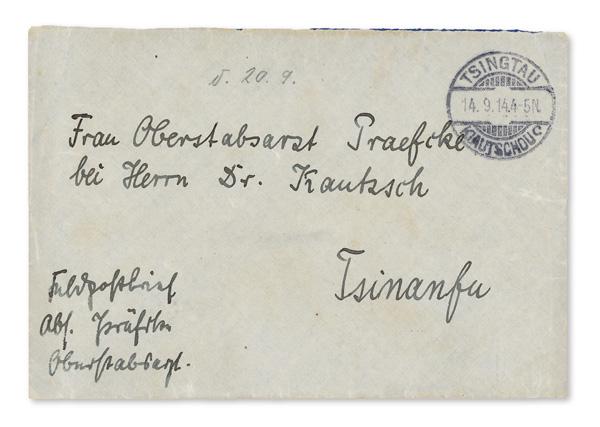 v. 20.9.
TSINGTAU
14.9.14.4-5N.
KIAUTSCHOU
Frau Oberstabsarzt Praefcke
bei Herrn Dr. Kautzsch
Tsinanfu
Feldpostbrief
Abs. Präfcke
Oberstabsarzt.